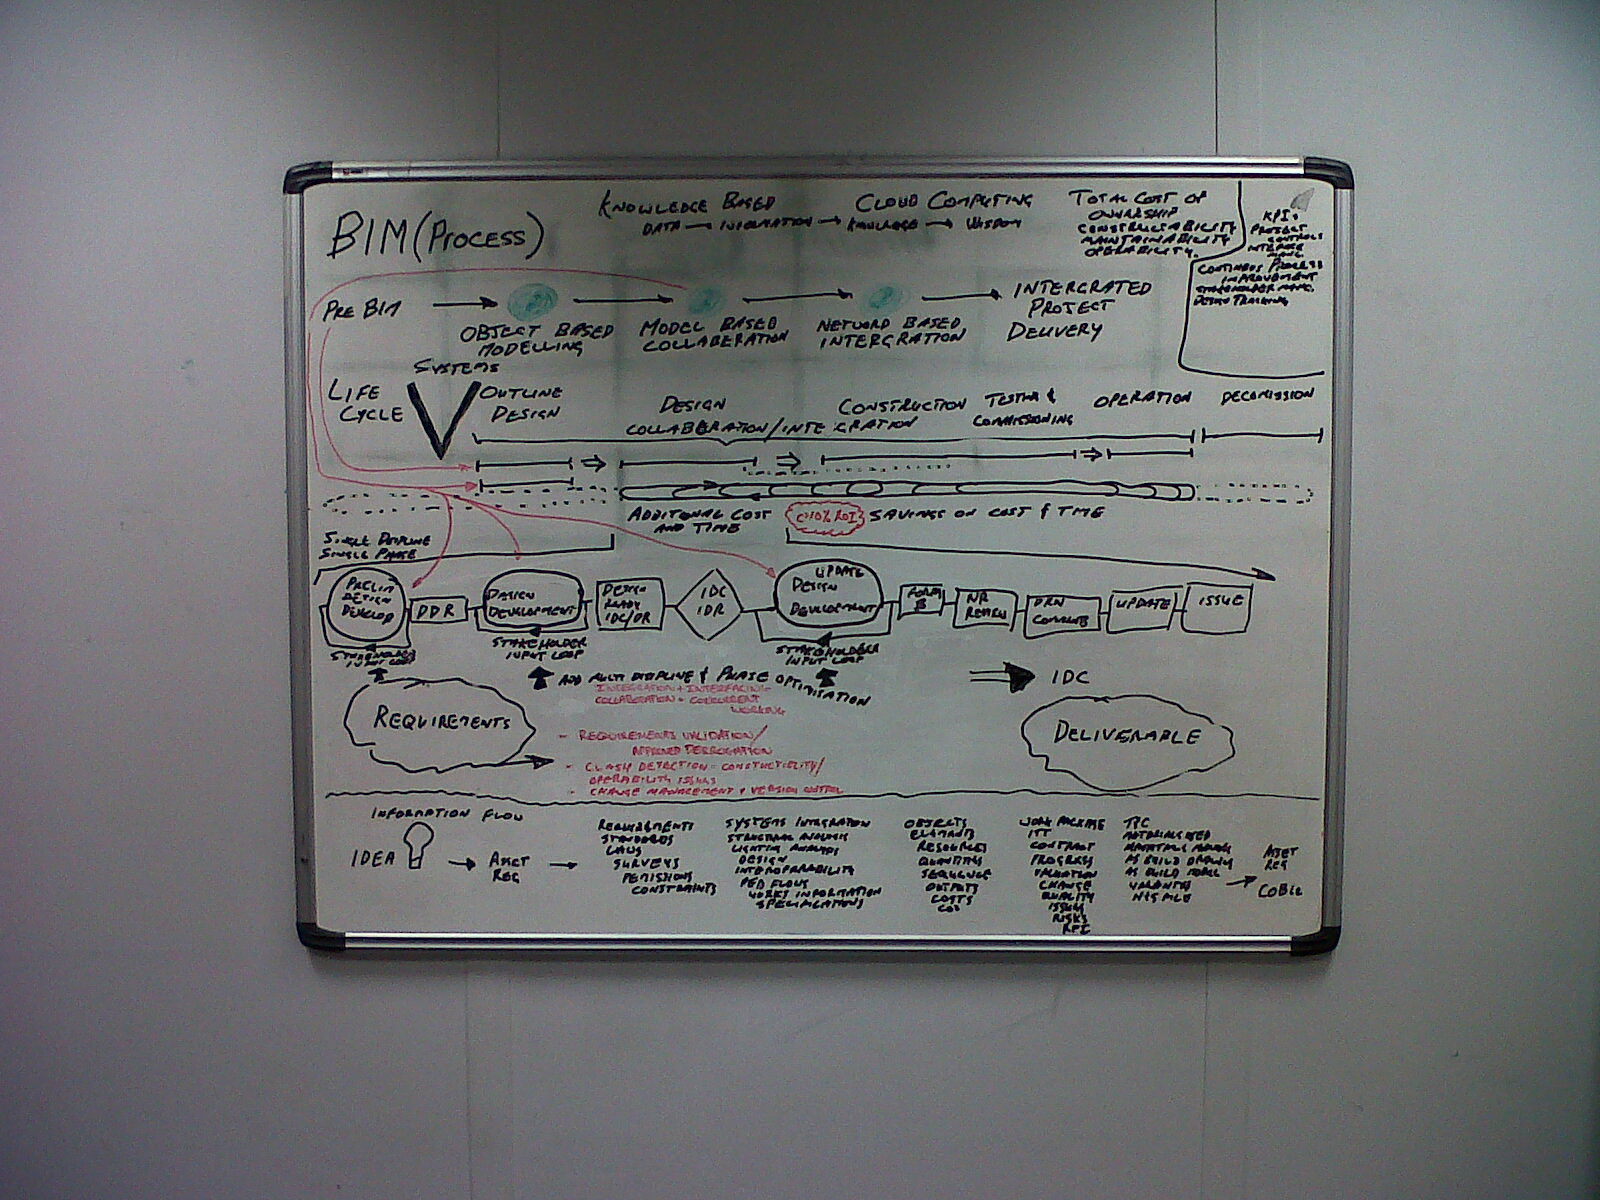 KNOWLEDGE BASED
CLOUD COMPUTING
BIM (PROCESS)
DATA → INFORMATION → KNOWLEDGE → WISDOM
TOTAL COST OF
OWNERSHIP
CONSTRUCTABILITY
MAINTAINABILITY
OPERABILITY.
KPI's
PROJECT
CONTROLS
INTERFACE
MANG.
CONTINOUS PROCESS
IMPROVEMENT
STAKEHOLDER MANG.
DESIGN TRACKING
PRE BIM
OBJECT BASED
MODELLING
MODEL BASED
COLLABERATION
NETWORD BASED
INTERGRATION
INTERGRATED
PROJECT
DELIVERY
LIFE
CYCLE
SYSTEMS
OUTLINE
DESIGN
DESIGN
COLLABERATION/INTEGRATION
CONSTRUCTION
TESTING &
COMMISSIONING
OPERATION
DECOMISSION
ADDITIONAL COST
AND TIME
SAVINGS ON COST & TIME
SINGLE DISIPLINE
SINGLE PHASE
PRELIM
DESIGN
DEVELOP
DDR
DESIGN
DEVELOPMENT
DESIGN
READY
IDC/DR
IDC
IDR
UPDATE
DESIGN
DEVELOPMENT
FORM
B
NR
REVIEW
DRN
COMMENTS
UPDATE
ISSUE
STAKEHOLDER
INPUT LOOP
STAKEHOLDER
INPUT LOOP
STAKEHOLDER
INPUT LOOP
ADD MULTI DISIPLINE & PHASE OPTIMISATION
INTEGRATION + INTERFACING
COLLABORATION + CONCURRENT
WORKING
IDC
REQUIREMENTS
- REQUIREMENTS VALIDATION/
APPROVED DERROGATION
- CLASH DETECTION - CONSTUCTIBILITY/
OPERABILITY ISSUES
- CHANGE MANAGEMENT + VERSION CONTROL
DELIVERABLE
INFORMATION FLOW
IDEA
ASSET
REG
REQUIREMENTS
STANDARDS
LAWS
SURVEYS
PERMISSIONS
CONSTRAINTS
SYSTEMS INTEGRATION
STRUCTURAL ANALYSIS
LIGHTING ANALYSIS
DESIGN
INTEROPERABILITY
PED FLOWS
WORKS INFORMATION
SPECIFICATIONS
OBJECTS
ELEMENTS
RESOURCES
QUANTITIES
SEQUENCE
OUTPUTS
COSTS
CO2
WORK PACKAGE
ITT
CONTRACT
PROGRESS
VALUATION
CHANGE
QUALITY
ISSUES
RISKS
KPI
MATERIALS USED
MAINTENANCE MANUALS
AS BUILD DRAWING
AS BUILD MODEL
WARANTIES
H&S FILE
ASSET
REG
COBie